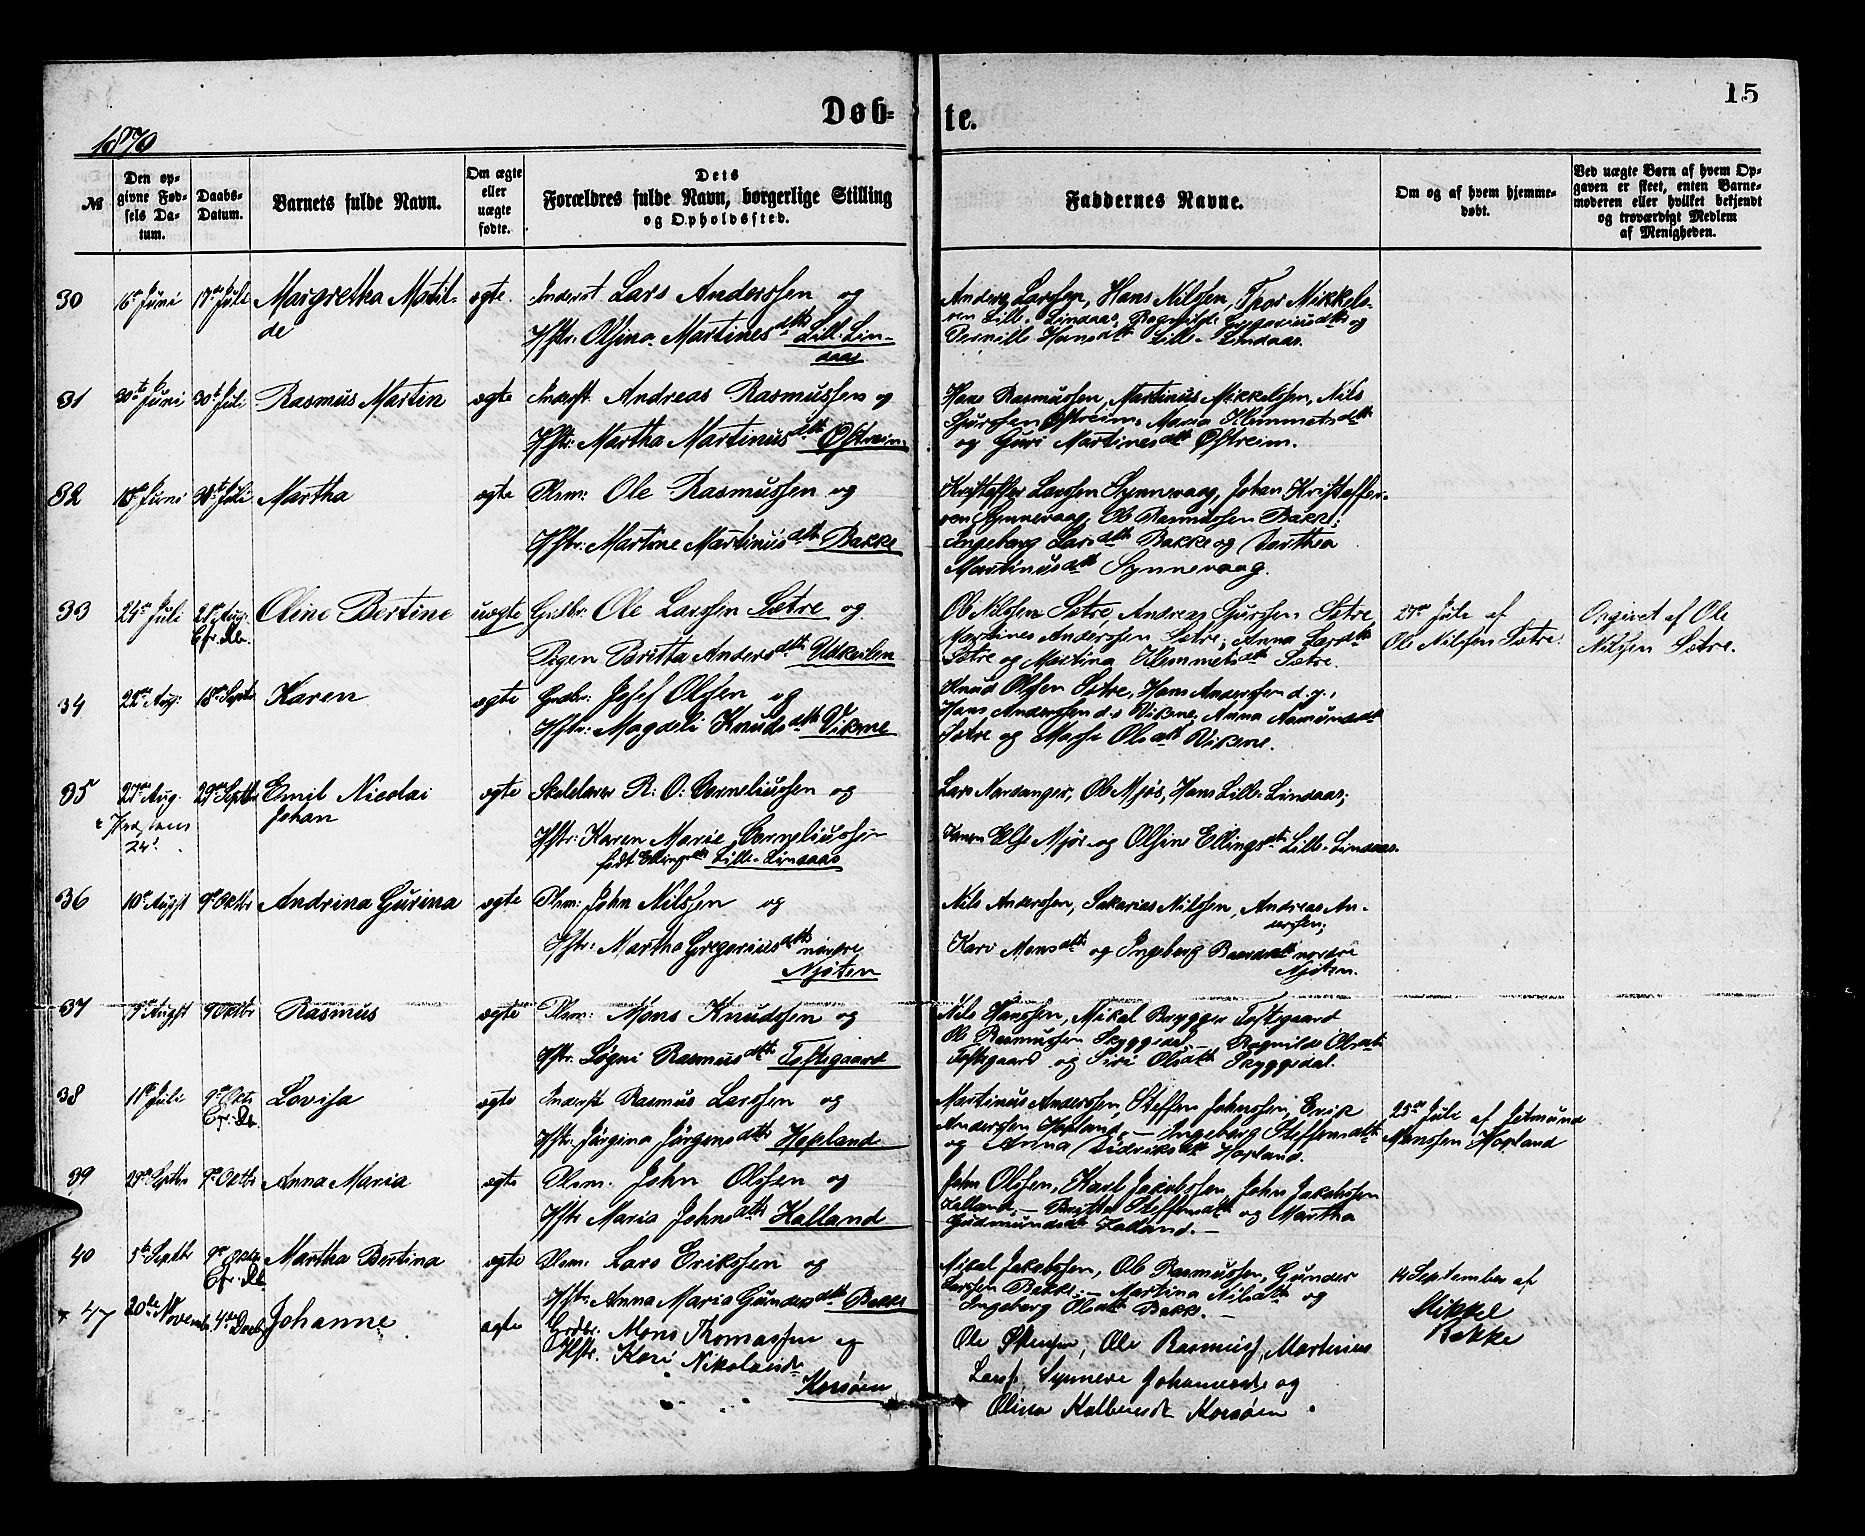 15
Døb=te.
1870
№
Den op=
givne Fød=
sels Da=
tum.
Daabs=
Datum.
Barnets fulde Navn.
Om ægte
eller
uægte
fødte.
Dets
Forældres fulde Navn, borgerlige Stilling
og Opholdssted.
Faddernes Navne.
Om og af hvem hjemme=
døbt.
Ved uægte Børn af hvem Op=
gaven er skeet, enten Barne=
moderen eller hvilket bekjendt
og troværdigt Medlem
af Menigheden.
30 16de Juni 17de Juli Margretha Matil-
de
ægte. Inderst Lars Anderssen og
Hstr: Oljina Martinesdtr Lill-Lin-
daas
Anders Larssen, Hans Nilssen, Thor Mikkels-
sen Lill-Lindaas, Ragnhild Gregoriusdtr og
Pernille Hansdtr Lille-Lindaas.
31 30te Juni 30te Juli Rasmus Martin ægte Inderst. Andreas Rasmussen og
Hstr: Martha Martinusdtr Østreim
Hans Rasmussen, Martinus Mikkelssen, Nils
Sjurssen Østreim, Maria Hemmetsdtr
og Guri Martinesdtr Østreim.
32 Juni Juli Martha ægte Plsm: Ole Rasmussen og
Hstr: Martine Martinusdtr Bakke
Kristaffer Larssen Synnevaag, Johan Kristaffer-
sen Synnevaag, Ole Rasmussen Bakke;
Ingeborg Larsdtr Bakke og Dorthea
Martinusdtr Synnevaag.
33 24de Juli 21de Aug. Efr. Db. Oline Bertine uægte Gaardbr: Ole Larssen Sætre og
Pigen Baritta Andersdtr Udkeilen
Ole Nilssen Sætre, Andreas Sjurssen Sætre,
Martines Anderssen Sætre; Anna Larsdtr
Sætre og Martina Hemmetsdtr Sætre.
27de Jule af
Ole Nilssen Sætre.
Opgivet af Ole
Nilssen Sætre.
34 22de Aug: 18de Septbr Karen ægte Gaardbr: Josef Olssen og
Hstr: Magdeli Knudsdtr Vikene
Knud Olssen Sætre, Hans Anderssen d.y.,
Hans Anderssen d. Vikene; Anna Aamundsdtr
Sætre og Masse Olsdtr Vikene.
35 27de Aug. 29de Septbr Emil Nicolai
Johan
24'.
ægte Skolelærer R: O: Corneliussen og
Hstr: Karen Marie Corneliussen
født Ellingsdtr Lille-Lindaas
Lars Nordanger, Ole Mjøs, Hans Lille-Lindaas;
Karen Else Mjøs og Olsine Ellingsdtr Lille-Lindaas.
36 10de Augst 9de Oktbr Andrina Gurina ægte Plsm: John Nilssen og
Hstr: Martha Gregoriusdtr nordre
Njøten
Nils Anderssen, Sakarias Nilssen, Andreas An-
derssen;
Kari Monsdtr og Ingeborg Baardsdtr nordre
Njøten.
37 9de Augst 9 Oktbr Rasmus ægte Plsm: Mons Knudssen og
Hstr. Søgni Rasmusdtr Toftegaard
Nils Hanssen, Mikal Brygger Toftegaard
Ole Rasmussen Skyggedal, — Ragnilde Olsdtr
Toftegaard og Siri Olsdtr Skyggedal.
38 11te Juli 9de Oktr Efr. Db. Lovisa ægte Inderst Rasmus Larssen og
Hstr: Jørgina Jørgensdtr Hopland
Martinus Anderssen, Steffen Johnssen, Erik
Anderssen Hopland, — Ingeborg Steffensdtr
og Anna Didriksdtr Hopland.
25de Jule af Jetmund
Monssen Hopland
39 29de Septbr 9de Octbr Anna Maria ægte Plsm. John Olssen og
Hstr Maria Johnsdtr Kalland
John Olssen, Karl Jakobssen, John Jakobssen
Kalland, — Britta Steffensdtr og Martha
Gudmundsdtr Kalland. —
40 5te Septbr 9de Oktbr Efr. Db. Martha Bertina ægte Plsm: Lars Erikssen og
Hstr: Anna Maria Gundersdtr Bakke
Mikal Jakobssen, Ole Rasmussen, Gunder
Larssen Bakke; — Martina Nilsdtr og
Ingeborg Olsdtr Bakke. —
14 September af
Mikkel
Bakke
47 20de Novemb 4de Decbr Johanne ægte Grdbr. Mons Thomassen og
Hstr. Kari Nikolaisdtr
Korsøen
Ole Rasmuss, Martinius
Larss, Synneve Johannesdtr og
Olina Korsøen.